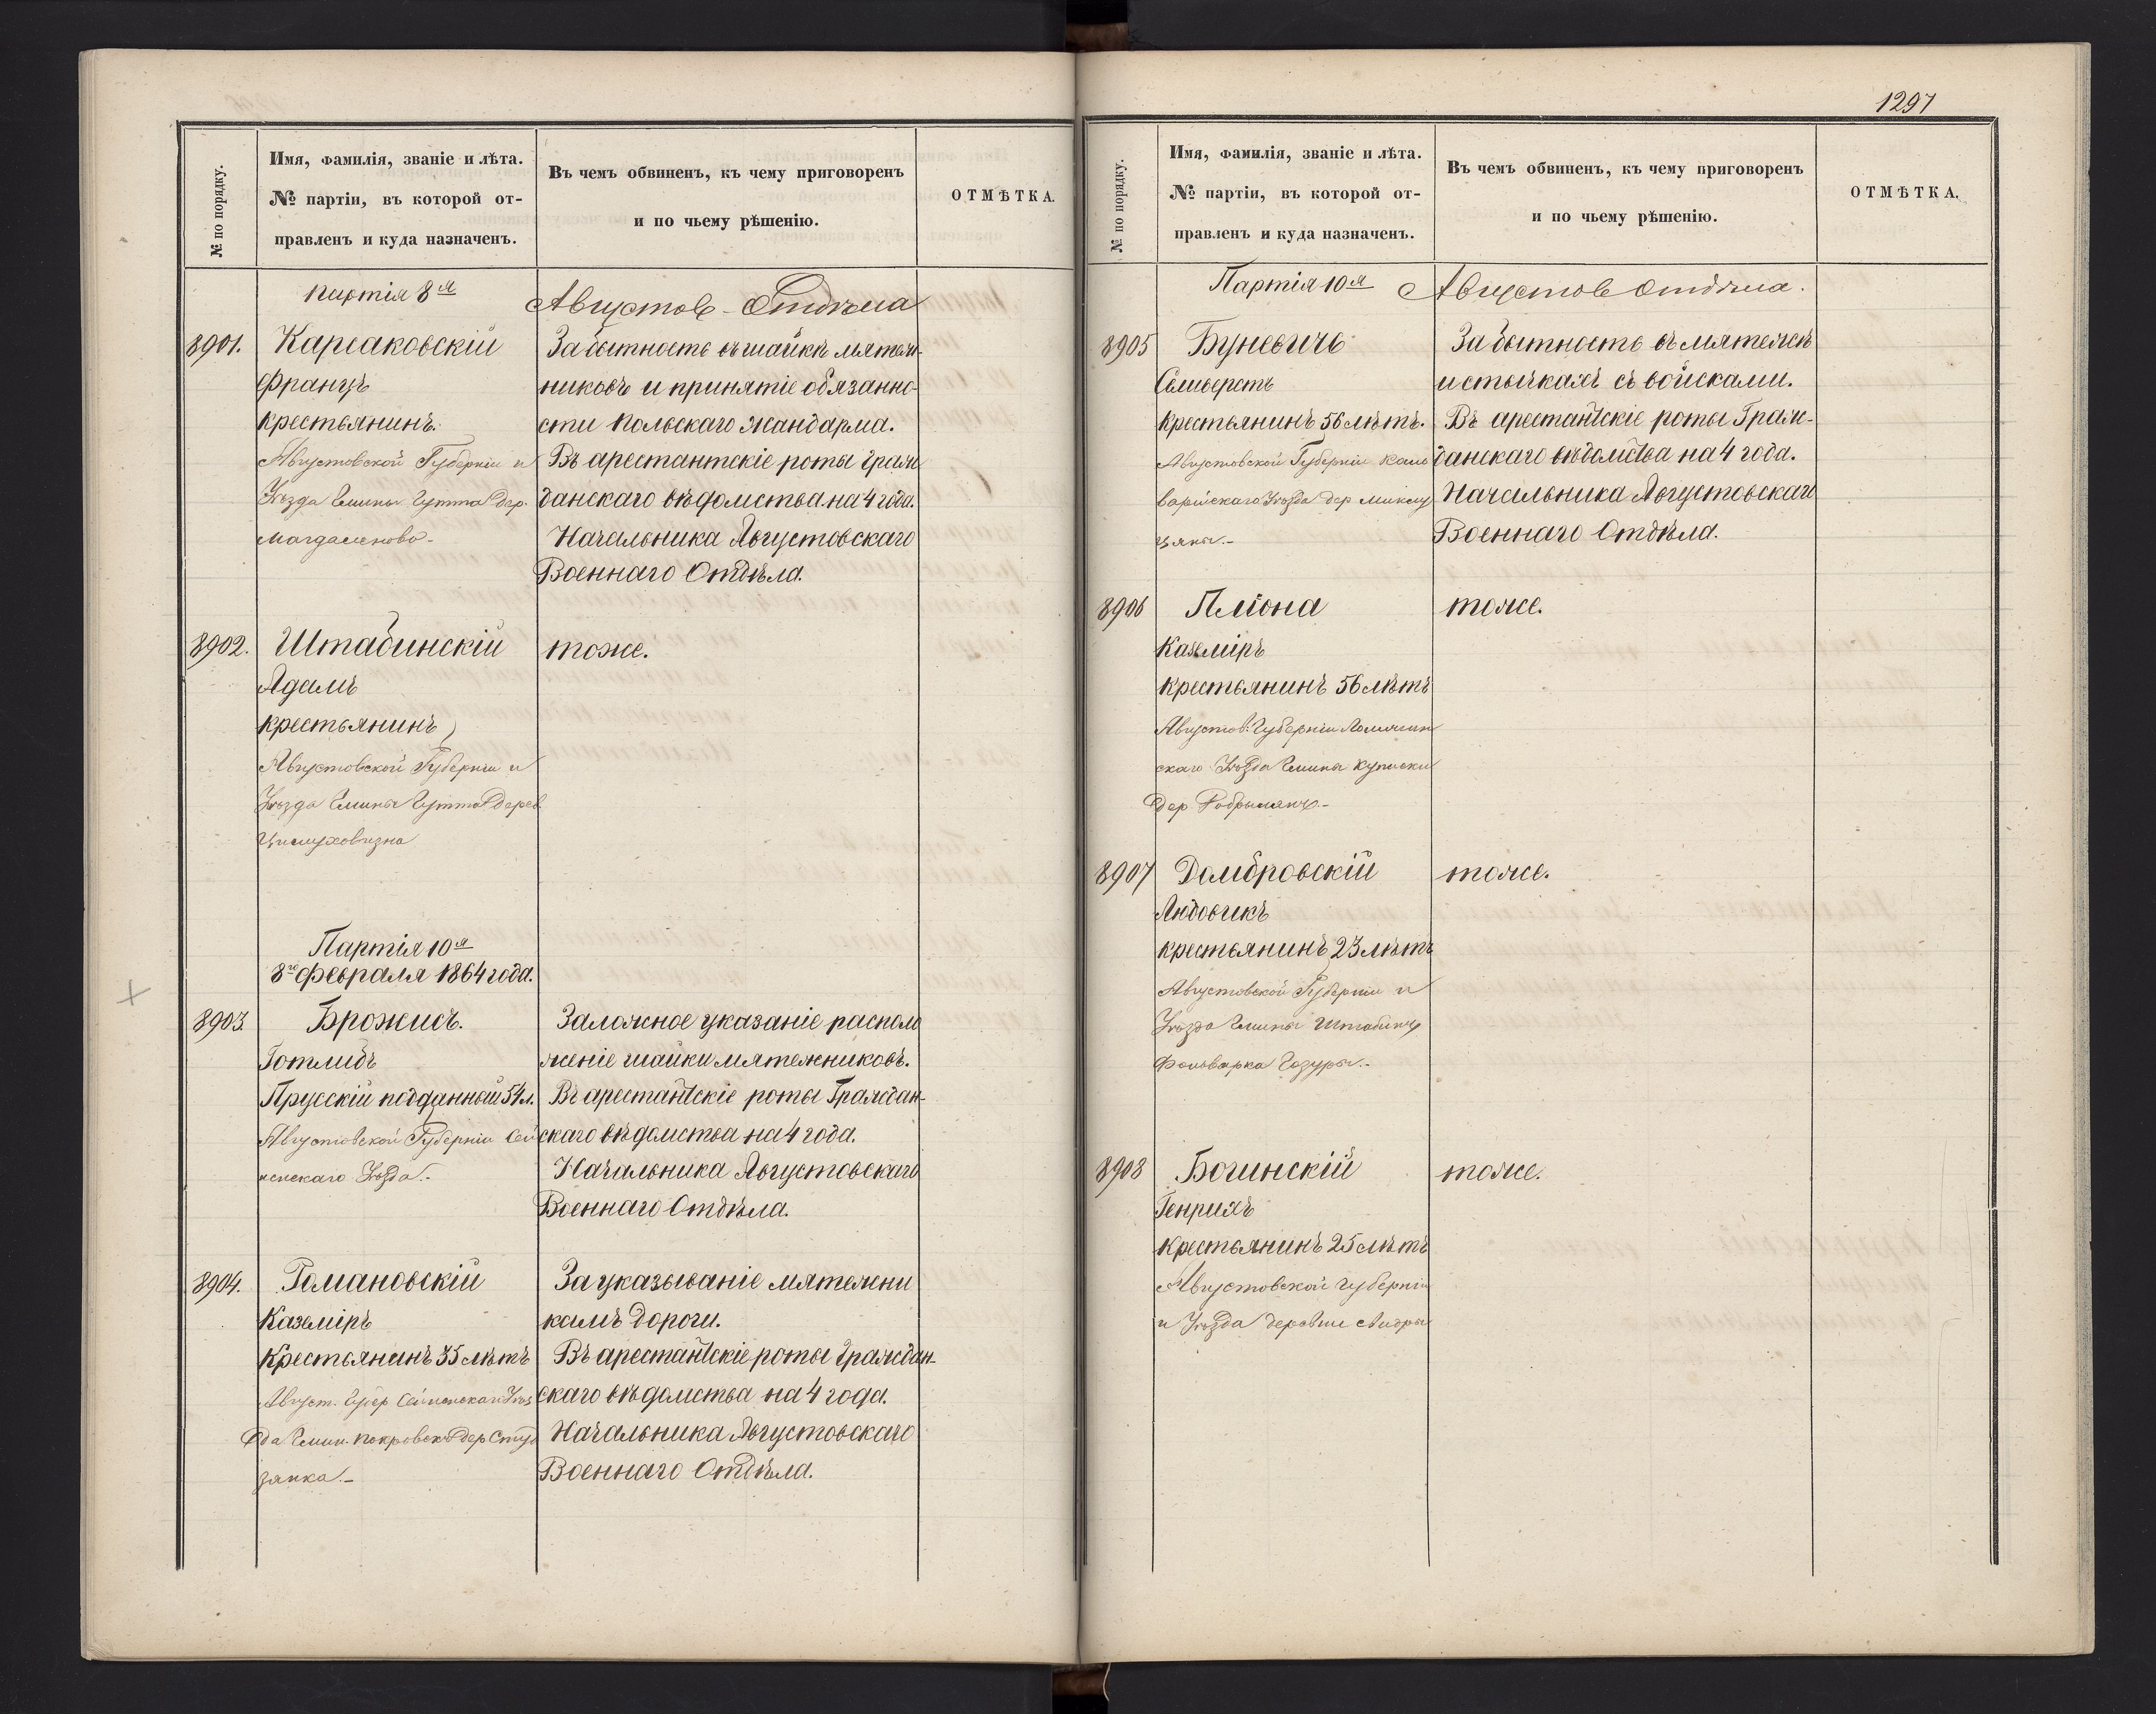 № по порядку.
Имя, фамилія, званіе и лѣта.
№ партіи, въ которой от-
правленъ и куда назначенъ.
Въ чемъ обвиненъ, къ чему приговоренъ
и по чьему рѣшенію.
ОТМѢТКА.
партія 8я
Августов- Отдѣла
8901.
Карсаковскій
Францъ
крестьянинъ.
Августовской Губерніи и
Уѣзда Гмины Гутта дер.
Магдаленово-
За бытность въ шайкѣ мятеж-
никовъ и принятіе обязанно-
сти Польскаго жандарма.
Въ арестантскіе роты Граж
данскаго вѣдомства на 4 года.
Начальника Августовскаго
Военнаго Отдѣла.
8902.
Штабинскій
Адамъ
крестьянинъ
Августовской Губерніи и
Уѣзда Гмины Гутта дерев
Цислуховизна
тоже.
Партія 10я
8го февраля 1864 года.
8903.
Брожисъ.
Готлибъ
Прусскій подданный 54 л.
Августовской Губерніи Сей
ненскаго Уѣзда.-
За ложное указаніе располо
женіе шайки мятежниковъ.
Въ арестантскіе роты Граждан-
скаго вѣдомства на 4 года.
Начальника Августовскаго
Военнаго Отдѣла.
8904.
Гомановскій
Каземіръ
Крестьянинъ 35 лѣтъ
Август. Губер Сейненскаго Уѣз
да Гмин. Покровскъ дер Студ
зянка.-
За указываніе мятежни
камъ дороги.
Въ арестантскіе роты Граждан-
скаго вѣдомства на 4 года.
Начальника Августовскаго
Военнаго Отдѣла.
1297
№ по порядку.
Имя, фамилія, званіе и лѣта.
№ партіи, въ которой от-
правленъ и куда назначенъ.
Въ чемъ обвиненъ, къ чему приговоренъ
и по чьему рѣшенію.
ОТМѢТКА.
Партія 10я
Августов Отдѣла.
8905
Буневичъ
Сильверстъ
крестьянинъ 56 лѣтъ.
Августовской Губерніи Каль
варійскаго Уѣзда дер Миклу
цяны.-
За бытность въ мятежѣ
и стычкахъ съ войсками.
Въ арестантскіе роты Граж-
данскаго вѣдомства на 4 года.
Начальника Августовскаго
Военнаго Отдѣла.
8906
Пліона
Каземіръ
крестьянинъ 56 лѣтъ
Августов: Губерніи Ломжин
скаго Уѣзда Гмины Куписки
дер.
тоже.
8907
Домбровскій
Людовикъ
крестьянинъ 23 лѣтъ
Августовской Губерніи и
Уѣзда Гмины Штабинъ
Фольварка Гозуры.-
тоже.
8908
Богинскій
Генрихъ
крестьянинъ 25 лѣтъ
Августовской Губерніи
и Уѣзда деревни
тоже.